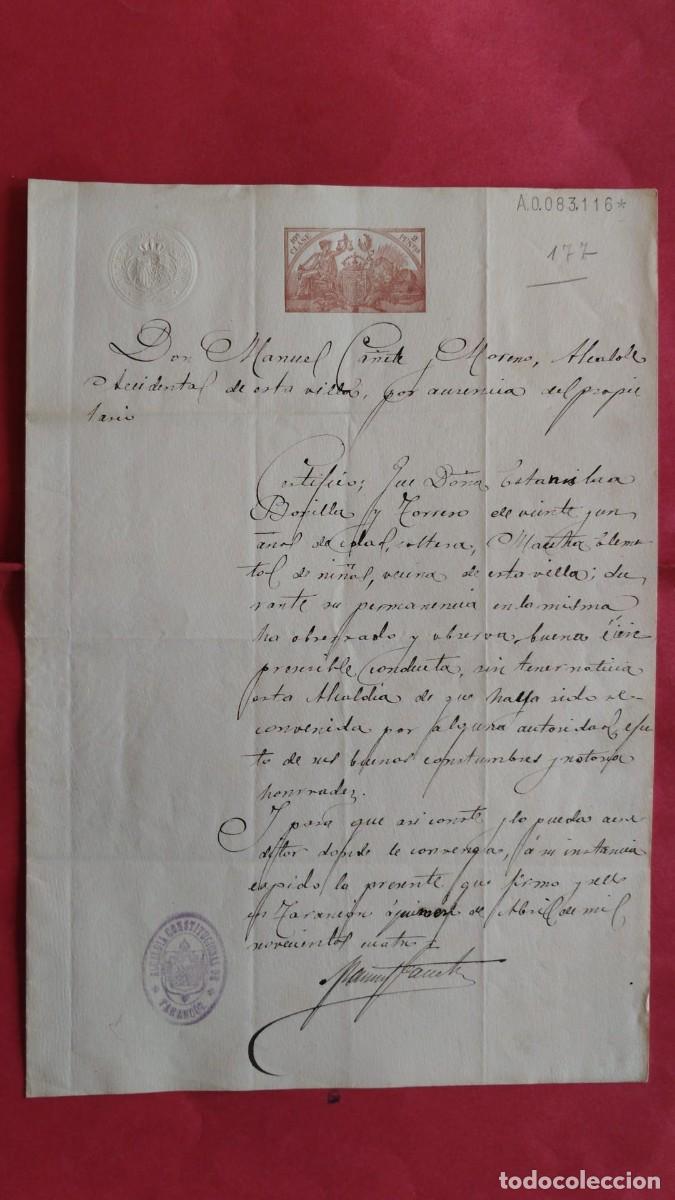 A.0.083.116*
177
CLASE
Don Manuel Cañete y Moreno, Alcalde
Accidental de esta villa, por ausencia del propie
tario
Certifico; Que Doña Estanislaa
Bonilla y Torrero de veinte y un
años de edad, soltera, Maestra Elemen
tal de niñas, vecina de esta villa; du
rante su permanencia en la misma
ha observado y observa, buena é irre
prensible conducta, sin tener noticia
esta Alcaldía de que haya sido re
convenida por alguna autoridad, efec
to de sus buenas constumbres y notoria
honrradez.
Y para que asi conste y lo pueda acre
ditar donde le convenga, á su instancia
expido la presente que firmo y sello
en Tarancón á primero de Abril de mil
novecientos cuatro
Manuel Cañete
ALCALDIA CONSTITUCIONAL DE
TARANCON
todocoleccion